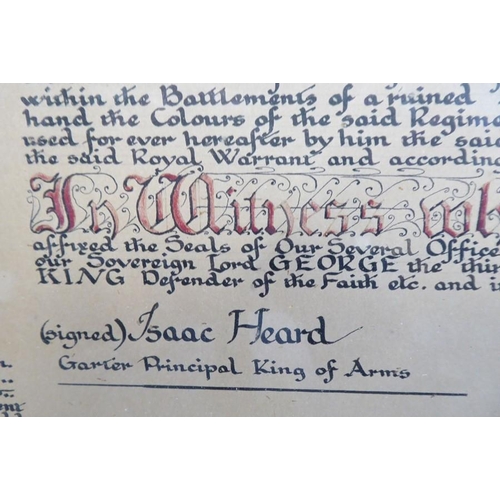 within the Battlements of a ruined
hand the Colours of the said Regime
used for ever hereafter by him the said
the said Royal Warrant and accordin
In Witness wh
affixed the Seals of Our Several Office
our Sovereign Lord GEORGE the thir
KING Defender of the Faith etc. and i
(signed) Isaac Heard
Garter Principal King of Arms